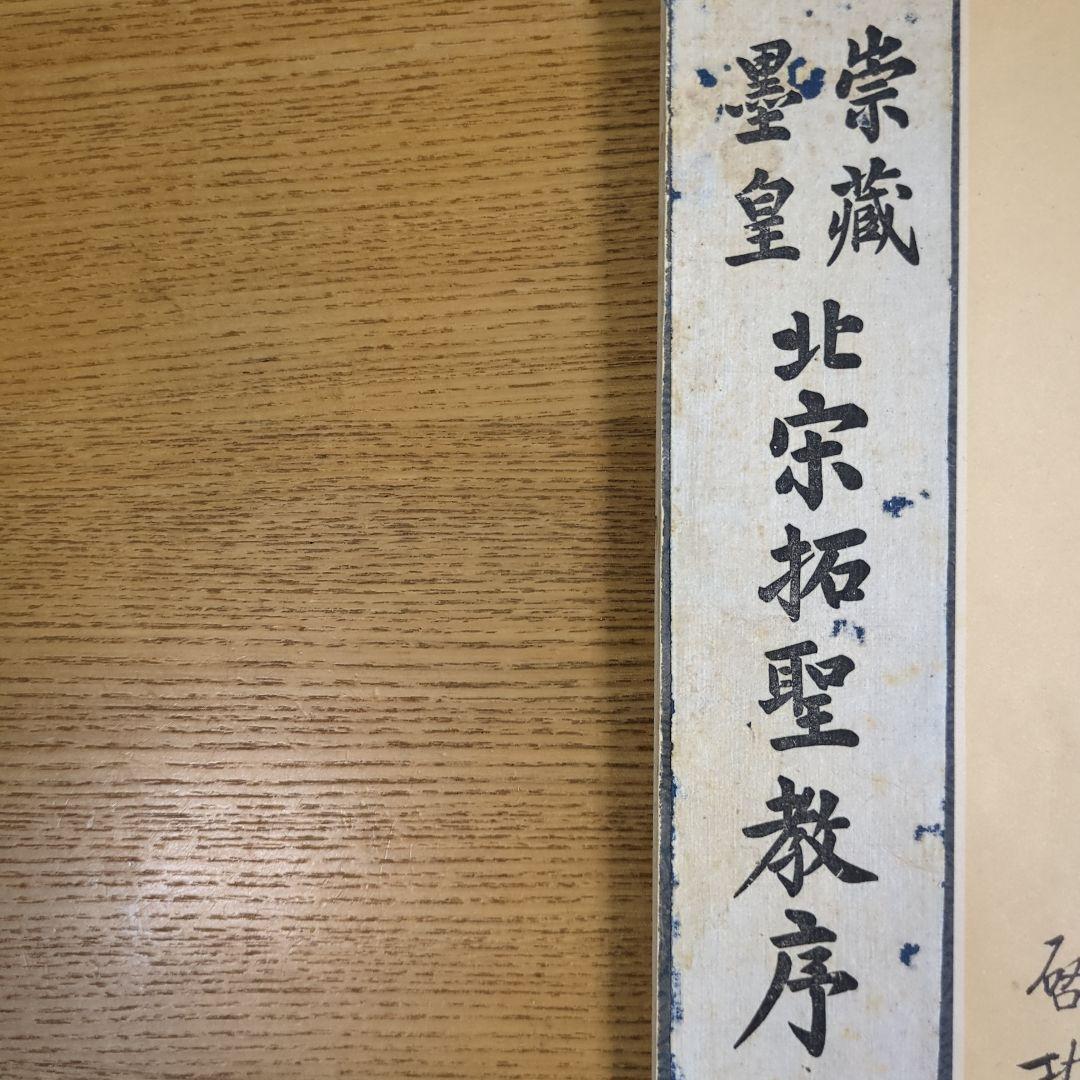 崇藏
墨皇
北宋拓聖教序
啓
功